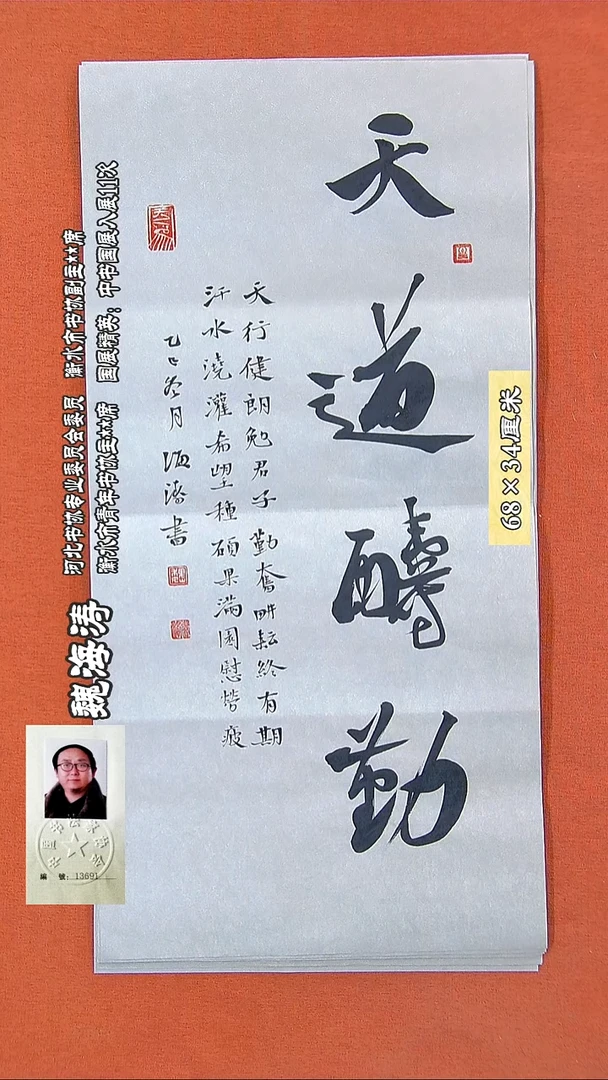 天道醻勤
天行健朗勉君子勤奮畊耘終有期
汗水澆灌希望種碩果滿園慰勞疲
乙巳冬月海濤書
68×34厘米
魏海涛
河北书协专业委员会委员 衡水市书协副主**席
衡水市青年书协主**席 国展精英：中书国展入展11次
編 號：13691